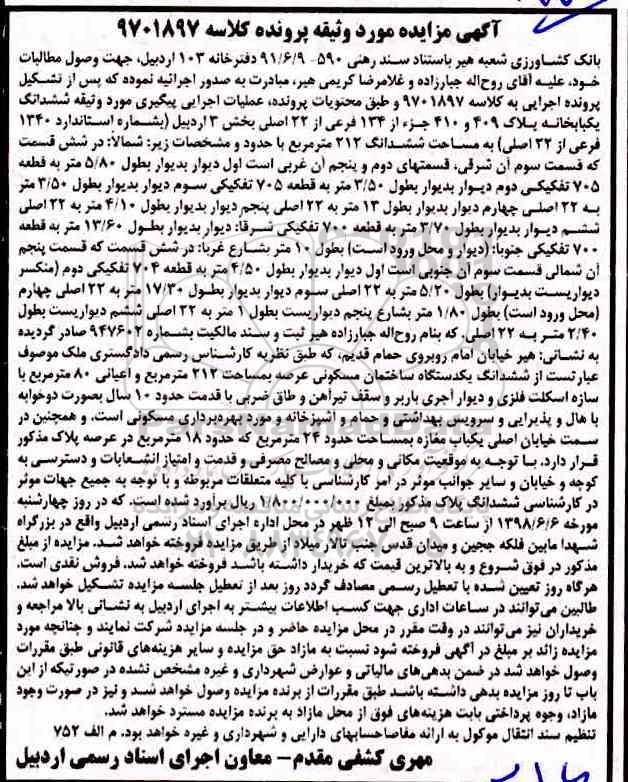 آگهی مزایده مورد وثیقه پرونده کلاسه ۹۷۰۱۸۹۷
بانک کشاورزی شعبه هیر باستناد سند رهنی ۵۹۰- ۹۱/۶/۹ دفترخانه ۱۰۳ اردبیل، جهت وصول مطالبات
خود، علیه آقای روح‌اله جبارزاده و غلامرضا کریمی هیر، مبادرت به صدور اجرائیه نموده که پس از تشکیل
پرونده اجرایی به کلاسه ۹۷۰۱۸۹۷ و طبق محتویات پرونده، عملیات اجرایی پیگیری مورد وثیقه ششدانگ
یکبابخانه پلاک ۴۰۹ و ۴۱۰ جزء از ۱۳۴ فرعی از ۲۲ اصلی بخش ۳ اردبیل (بشماره استاندارد ۱۳۴۰
فرعی از ۲۲ اصلی) به مساحت ششدانگ ۲۱۲ مترمربع با حدود و مشخصات زیر: شمالاً: در شش قسمت
که قسمت سوم آن شرقی، قسمتهای دوم و پنجم آن غربی است اول دیوار بدیوار بطول ۵/۸۰ متر به قطعه
۷۰۵ تفکیکی دوم دیوار بدیوار بطول ۳/۵۰ متر به قطعه ۷۰۵ تفکیکی سوم دیوار بدیوار بطول ۳/۵۰ متر
به ۲۲ اصلی چهارم دیوار بدیوار بطول ۱۳ متر به ۲۲ اصلی پنجم دیوار بدیوار بطول ۴/۱۰ متر به ۲۲ اصلی
ششم دیوار بدیوار بطول ۲/۷۰ متر به قطعه ۷۰۰ تفکیکی شرقا: دیوار بدیوار بطول ۱۳/۶۰ متر به قطعه
۷۰۰ تفکیکی جنوبا: (دیوار و محل ورود است) بطول ۱۰ متر بشارع غربا: در شش قسمت که قسمت پنجم
آن شمالی قسمت سوم آن جنوبی است اول دیوار بدیوار بطول ۴/۵۰ متر به قطعه ۷۰۴ تفکیکی دوم (منکسر
دیواریست بدیوار) بطول ۵/۲۰ متر به ۲۲ اصلی سوم دیوار بدیوار بطول ۱۷/۳۰ متر به ۲۲ اصلی چهارم
(محل ورود است) بطول ۱/۸۰ متر بشارع پنجم دیواریست بطول ۱ متر به ۲۲ اصلی ششم دیواریست بطول
۲/۴۰ متر به ۲۲ اصلی، که بنام روح‌اله جبارزاده هیر ثبت و سند مالکیت بشماره ۹۴۷۶۰۲ صادر گردیده
به نشانی: هیر خیابان امام روبروی حمام قدیم، که طبق نظریه کارشناس رسمی دادگستری ملک موصوف
عبارتست از ششدانگ یکدستگاه ساختمان مسکونی عرصه بمساحت ۲۱۲ مترمربع و اعیانی ۸۰ مترمربع با
سازه اسکلت فلزی و دیوار آجری باربر و سقف تیرآهن و طاق ضربی با قدمت حدود ۱۰ سال بصورت دوخوابه
با هال و پذیرایی و سرویس بهداشتی و حمام و آشپزخانه و مورد بهره‌برداری مسکونی است. و همچنین در
سمت خیابان اصلی یکباب مغازه بمساحت حدود ۲۴ مترمربع که حدود ۱۸ مترمربع در عرصه پلاک مذکور
قرار دارد. با توجه به موقعیت مکانی و محلی و مصالح مصرفی و قدمت و امتیاز انشعابات و دسترسی به
کوچه و خیابان و سایر جوانب موثر در امر کارشناسی با کلیه متعلقات مربوطه و با توجه به جمیع جهات موثر
در کارشناسی ششدانگ پلاک مذکور بمبلغ ۱/۸۰۰/۰۰۰/۰۰۰ ریال برآورد شده است. که در روز چهارشنبه
مورخه ۱۳۹۸/۶/۶ از ساعت ۹ صبح الی ۱۲ ظهر در محل اداره اجرای اسناد رسمی اردبیل واقع در بزرگراه
شهدا مابین فلکه ججین و میدان قدس جنب تالار میلاد از طریق مزایده فروخته خواهد شد. مزایده از مبلغ
مذکور در فوق شروع و به بالاترین قیمت که خریدار داشته باشد فروخته خواهد شد. فروش نقدی است.
هرگاه روز تعیین شده با تعطیل رسمی مصادف گردد روز بعد از تعطیل جلسه مزایده تشکیل خواهد شد.
طالبین می‌توانند در ساعات اداری جهت کسب اطلاعات بیشتر به اجرای اردبیل به نشانی بالا مراجعه و
خریداران نیز می‌توانند در وقت مقرر در محل مزایده حاضر و در جلسه مزایده شرکت نمایند و چنانچه مورد
مزایده زائد بر مبلغ در آگهی فروخته شود نسبت به مازاد حق مزایده و سایر هزینه‌های قانونی طبق مقررات
وصول خواهد شد در ضمن بدهی‌های مالیاتی و عوارض شهرداری و غیره مشخص نشده در صورتیکه از این
باب تا روز مزایده بدهی داشته باشد طبق مقررات از برنده مزایده وصول خواهد شد و نیز در صورت وجود
مازاد، وجوه پرداختی بابت هزینه‌های فوق از محل مازاد به برنده مزایده مسترد خواهد شد.
تنظیم سند انتقال موکول به ارائه مفاصاحسابهای دارایی و شهرداری و غیره خواهد بود. م الف ۷۵۲
مهری کشفی مقدم- معاون اجرای اسناد رسمی اردبیل